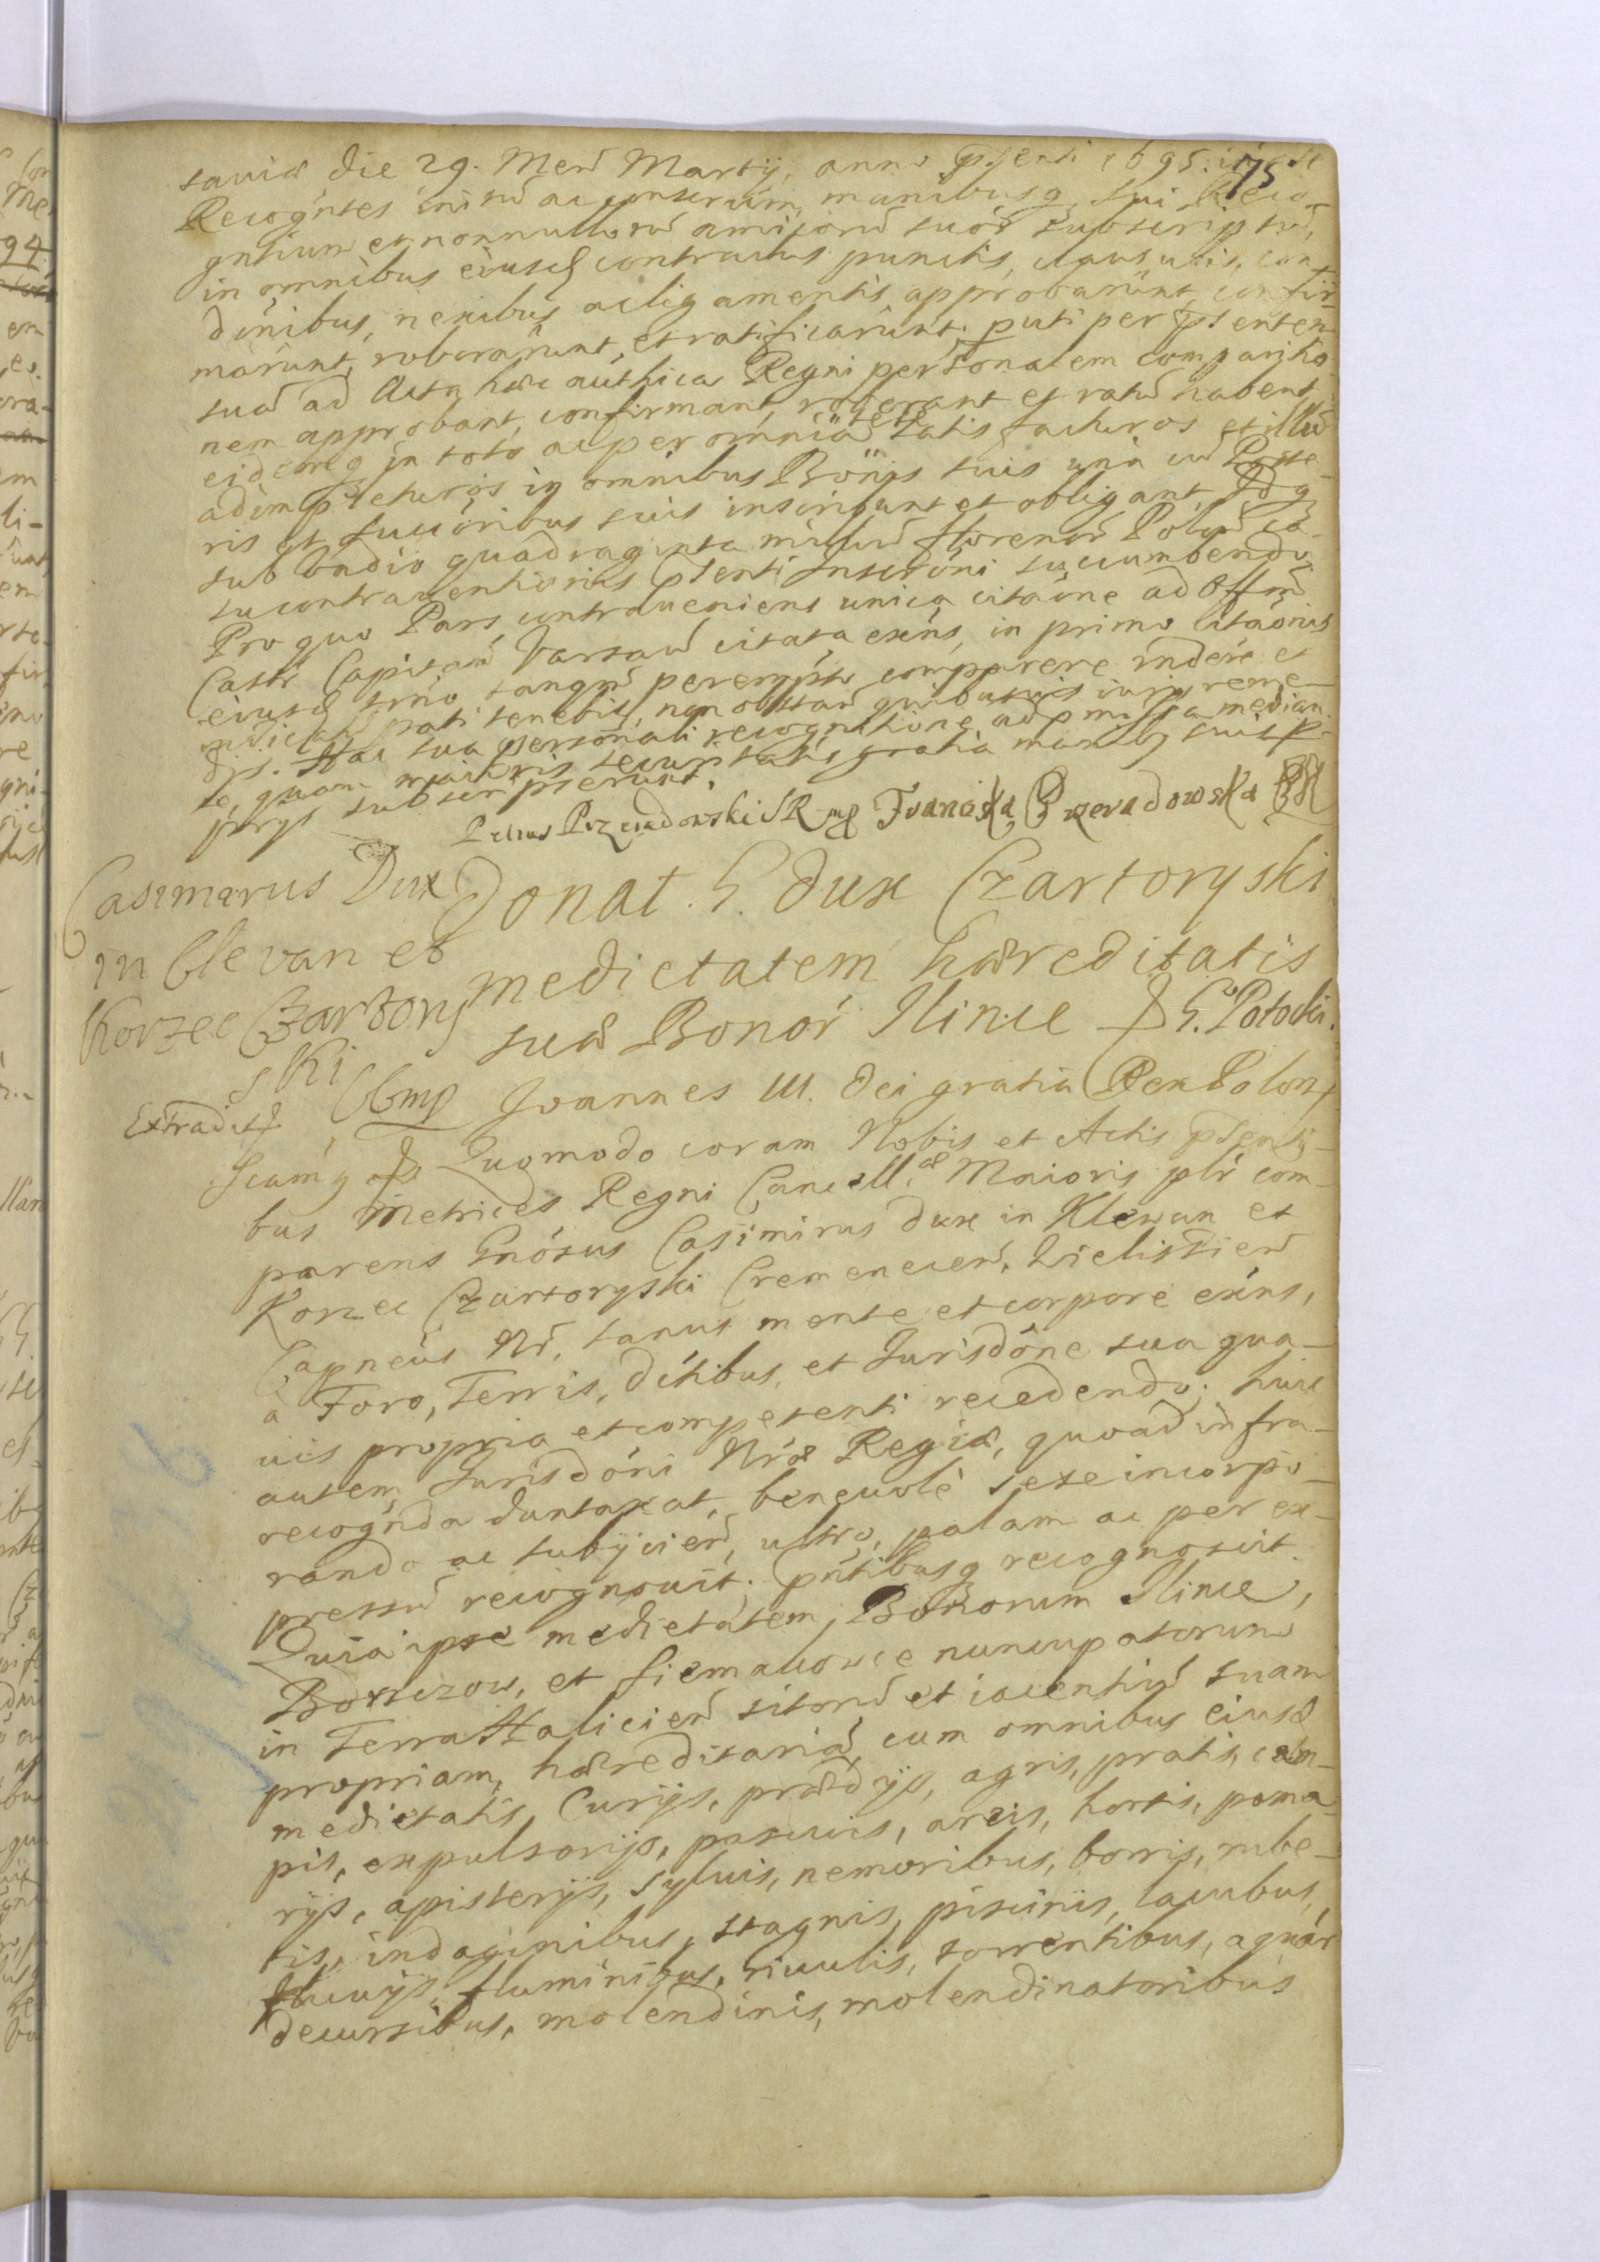 75
saviæ die 29. Men̄ Martij, anno p̄senti 1695. inter se
Recogn̄tes initū ac conscrūm, manibusq̄ sui Reco-
gn̄tium et nonnullorū amicorū suor̄ subscriptū,
in omnibus eiusd̄ contractus punctis, clausulis, con-
d̄nibus, nexibus ac ligamentis approbarunt, confir-
marunt, roborarunt, et ratificarunt; puti per p̄senten
suā ad Acta hæc authica Regni personalem compari̇tio-
nem approbant, confirmant, roborant et ratū habent,
eidemq̄ in toto ac per omnia sese satisfacturos et illū
adimpleturos in omnibus Bonis suis unà cū Poste-
ris et succ̄oribus suis inscribunt et obligant. Idq̄
sub vadio quadraginta milliū florenor̄ Polon̄ ca-
su contraventionis p̄senti Inscr̄oni succumbendo.
Pro quo Pars contraveniens unica cita̅one ad Offm̄
Castr̄ Capitan̄ Varsav̄ citata exn̄s, in primo Cita̅onis
eiusd̄ trn̄o tanqm̄ peremp̄to comparere r̄ndere et
iudicari pati tenebit̄, non obstan̄ quibusvis iuris reme-
dijs. Hac sua personali recognitione ad p̄missa median-
te, quam maioris securitatis gratia manibq̄ suis p-
prijs subscripserunt.
Petrus Przeradowski SR mp Franciska Przeradowska
Casimirus Dux
in Clevan et
Korzec Czartory
ski Cbmp
Extradit̄
Donat. G. dux Czartoryski
medietatem hæreditatis
suæ Bonor̄ Ilince G. Potocki.
Joannes III. Dei gratia Rex Polon̄
Quomodo coram Nobis et Actis p̄senti-
bus Metrices Regni Cancellæ Maioris pl̄r com-
parens Gn̄osus Casimirus dux in Klewan et
Korzec Czartoryski Cremenecen̄, Vielistien̄
Capneus Nr̄, sanus mente et corpore exn̄s,
à Foro, Terris, D̄ctibus, et Jurisd̄one sua qua-
vis propria et competenti recedendo; huic
autem Jurisd̄oni Nr̄æ Regiæ, quoad infra-
recogn̄da duntaxat, benevolè sese incorpo-
rando ac subijcien̄, ultro, palam ac per ex-
pressū recognovit; p̄ntibusq̄ recognoscit.
Quia ipse medietatem, Bonorum Ilince,
Borsczow, et Siemakowce nuncupatorum
in Terra Halicien̄ sitorū et iacentiū suam
propriam, hæreditariā, cum omnibus eiusd̄
medietatis, Curijs, prædijs, agris, pratis, cam-
pis, expulsorijs, pascuis, areis, hortis, poma-
rijs, apisterijs, sylvis, nemoribus, borris, rube-
tis, indaginibus, stagnis, piscinis, lacubus,
fluvijs, fluminibus, rivulis, torrentibus, aquar̄
decursibus, molendinis, molendinatoribus